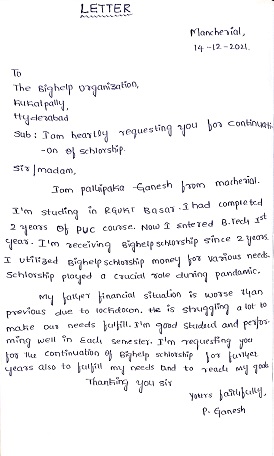 LETTER
Mancherial,
14-12-2021.
To
The Bighelp Organization,
Kukatpally,
Hyderabad
Sub : I am heartly requesting you for continuati
-on of schlorship.
Sir/madam,
I am pallipaka -Ganesh from macherial.
I'm studing in RGUKT Basar. I had completed
2 years of PUC course. Now I entered B.Tech 1st
year. I'm receiving Bighelp schlorship since 2 years.
I utilized Bighelp schlorship money for various needs.
Schlorship played a crucial role during pandamic.
My father financial situation is worse than
previous due to lockdown. He is struggling a lot to
make our needs fulfill. I'm good student and perfor-
ming well in Each semester. I'm requesting you
for the continuation of Bighelp schlorship for further
years also to fulfill my needs and to reach my goals
Thanking you sir
Yours faithfully,
P. Ganesh